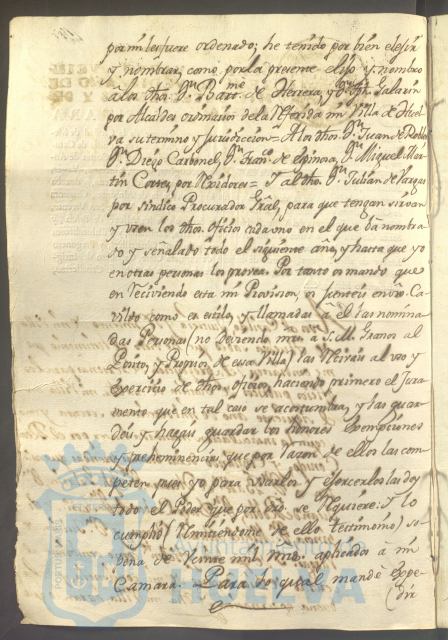 por mi les fuere ordenado; he tenido por bien elejir
y nombrar, como por la presente elijo y nombro
a los dhos. Dn. Barme. de Herrera, y Dn. Galarin
por Alcaldes ordinarios de la Referida mi Villa de Huel
va su termino y Jurisdiccion = A los dhos. Dn. Juan de Robles
Dn. Diego Carbonel, Dn. Franco. de Espinosa, Dn. Miguel Mar
tin Cortes, por Rexidores = Y al dho. Dn. Julian de Vargas
por Sindico Procurador Gral, para que tengan sirvan
y usen los dhos. oficios cada uno en el que va nombra
do y señalado todo el siguiente año, y hasta que yo
en otras personas los provea. Por tanto os mando que
en Reciviendo esta mi Provision, os junteis en vro. Ca
vildo como es estilo, y llamadas a el las nomina
das Personas (no Deviendo mrs. a S.M. Granos al
Posito, y Propios de essa Villa) las Reciváis al uso y
exercicio de dhos. oficios, haciendo primero el Jura
mento que en tal caso se acostumbra, y las guar
deis y hagais guardar los honores exempciones
y prehominencias que por razon de ellos les com
peten pues yo para usarlos y ejercerlos les doy
todo el Poder que por dro. se Requiere. Y lo
cumplid (Remitiendome de ello testimonio) so
pena de Veinte mil mrs. aplicados a mi
Camara. Para lo qual mandè expe
dir
HUELVA